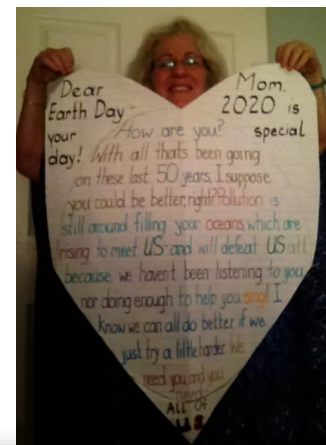 Dear Mom,
Earth Day - 2020 is
your How are you? special
day! With all that's been going
on these last 50 years, I suppose
you could be better, right? Pollution is
still around filling your oceans which are
rising to meet US and will defeat US all
because we haven't been listening to you
nor doing enough to help you sing! I
know we can all do better if we
just try a little harder. We
need you and you
need
ALL of
US